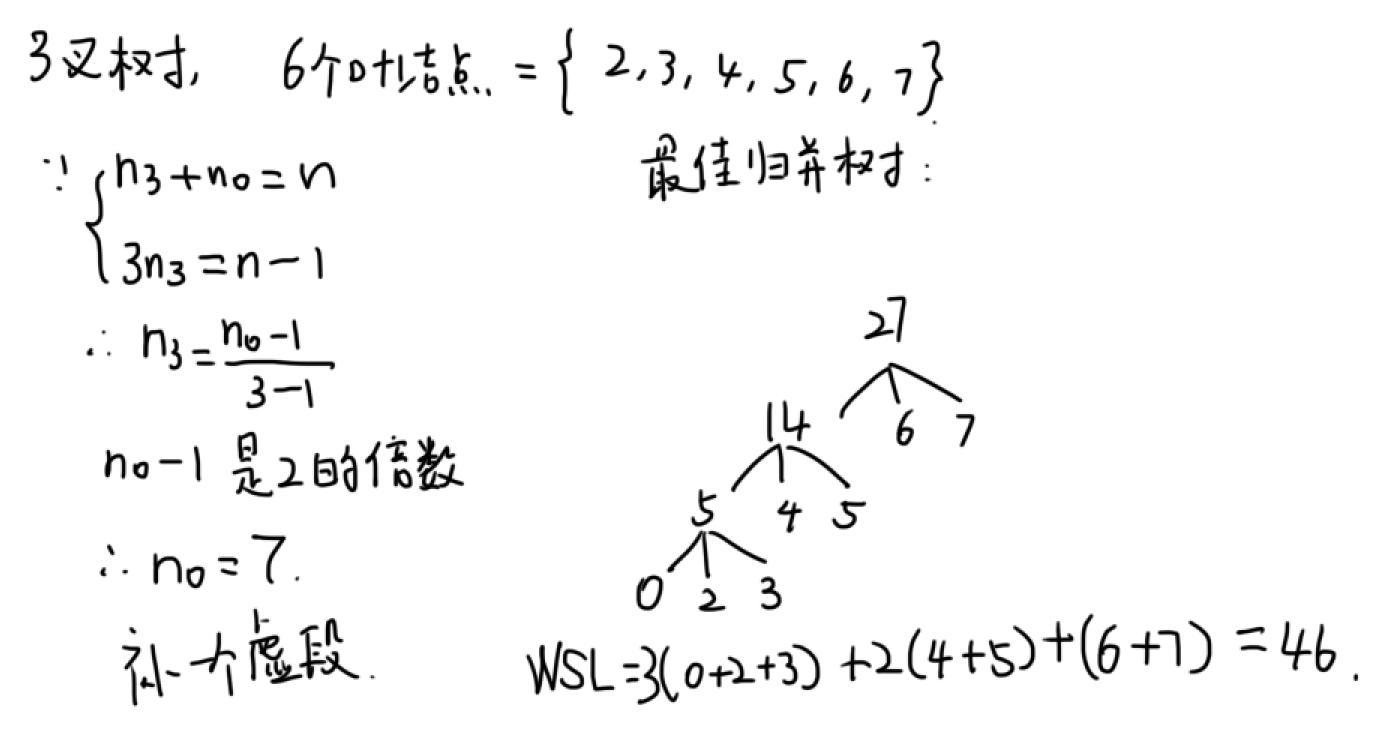 3叉树, 6个叶结点 = { 2, 3, 4, 5, 6, 7}
∵ { n₃+n₀=n
3n₃=n-1
∴ n₃= (n₀-1)/(3-1)
n₀-1 是2的倍数
∴ n₀=7.
补一个虚段.
最佳归并树:
27
14 6 7
5 4 5
0 2 3
WSL=3(0+2+3)+2(4+5)+(6+7) =46.